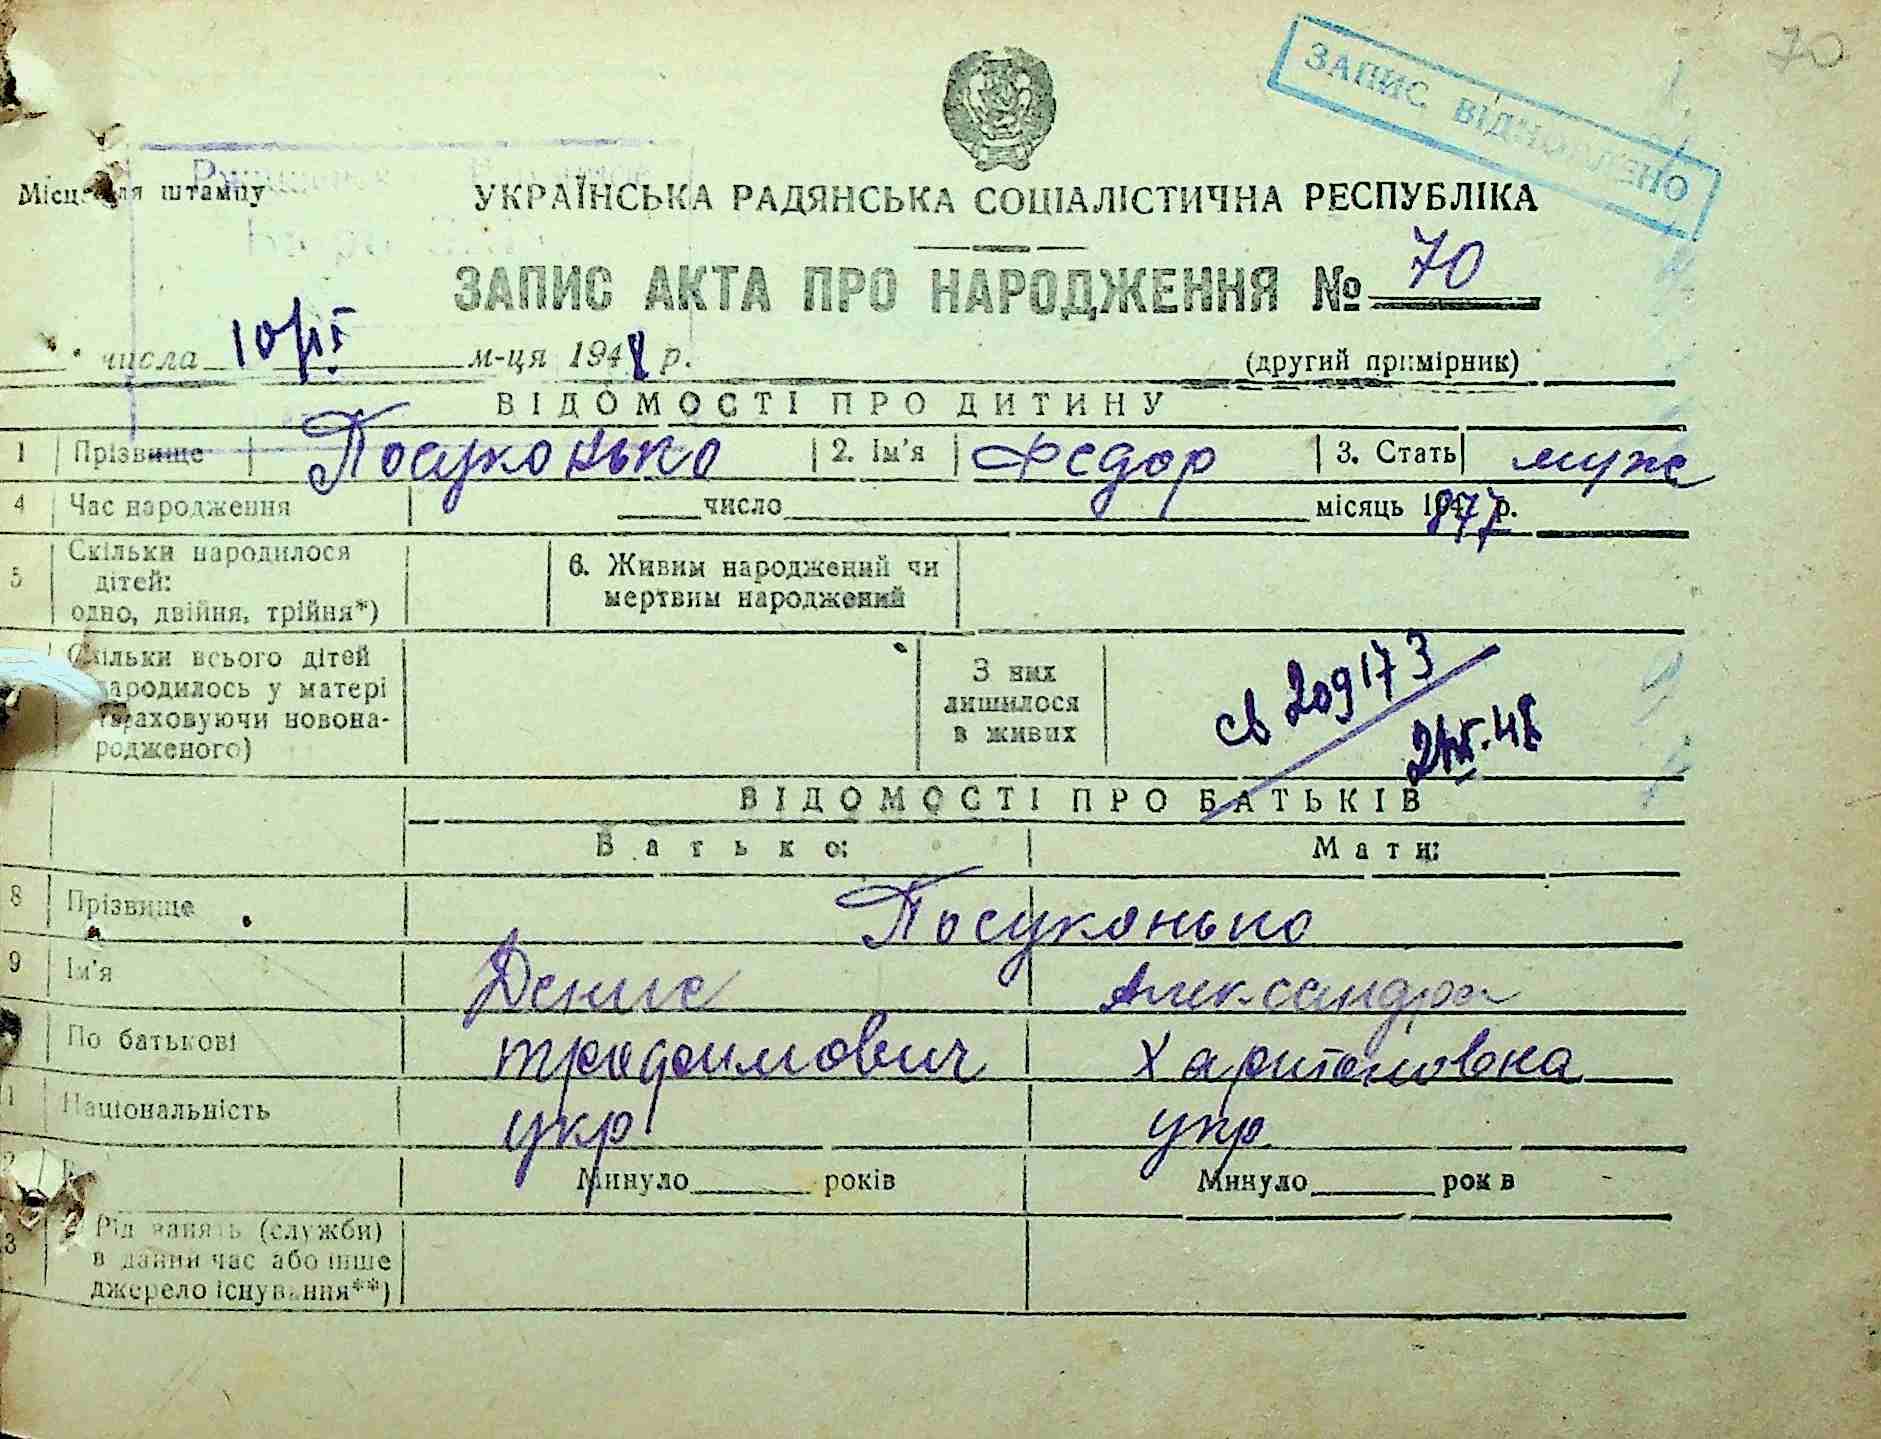 70
ЗАПИС ВІДНОВЛЕНО
Місце для штампу
УКРАЇНСЬКА РАДЯНСЬКА СОЦІАЛІСТИЧНА РЕСПУБЛІКА
ЗАПИС АКТА ПРО НАРОДЖЕННЯ № 70
числа 10/ІІ м-ця 1948 р. (другий примірник)
ВІДОМОСТІ ПРО ДИТИНУ
1 Прізвище Посуконько 2. Ім'я Федор 3. Стать муж
4 Час народження число місяць 1877 р.
5 Скільки народилося дітей: 6. Живим народжений чи
одно, двійня, трійня*) мертвим народжений
Скільки всього дітей З них
народилось у матері лишилося
(враховуючи новона- в живих
родженого)
св 209173
ВІДОМОСТІ ПРО БАТЬКІВ
Батько: Мати:
8 Прізвище Посуконько
9 Ім'я Денис Александра
По батькові Трофимович Харитоновна
Національність укр укр.
Минуло років Минуло років
Рід занять (служби)
в даний час або інше
джерело існування**)